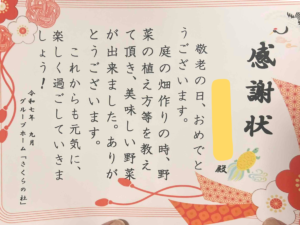 感謝状
殿
敬老の日、おめでと
うございます。
庭の畑作りの時、野
菜の植え方等を教え
て頂き、美味しい野菜
が出来ました。ありが
とうございます。
これからも元気に、
楽しく過ごしていきま
しょう！
令和七年 九月
グループホーム「さくらの杜」